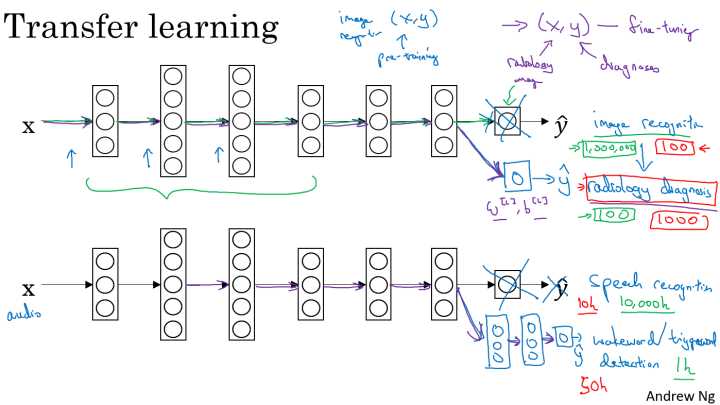 Transfer learning
image (x,y)
recognition
pre-training
→ (x,y) — fine-tuning
radiology
image
diagnoses
x
ŷ
image recognition
→ 1,000,000 100 ←
→ ŷ
→ radiology diagnosis
W[L], b[L]
→ 100 1000
x
audio
ŷ
Speech recognition
10h 10,000h
wakeword/triggerword
detection 1h
ŷ
50h
Andrew Ng